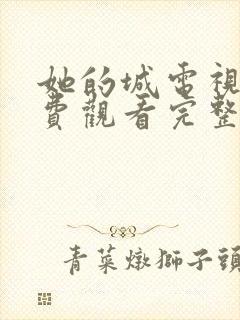 她的城電視
費觀看完整
青菜燉獅子頭